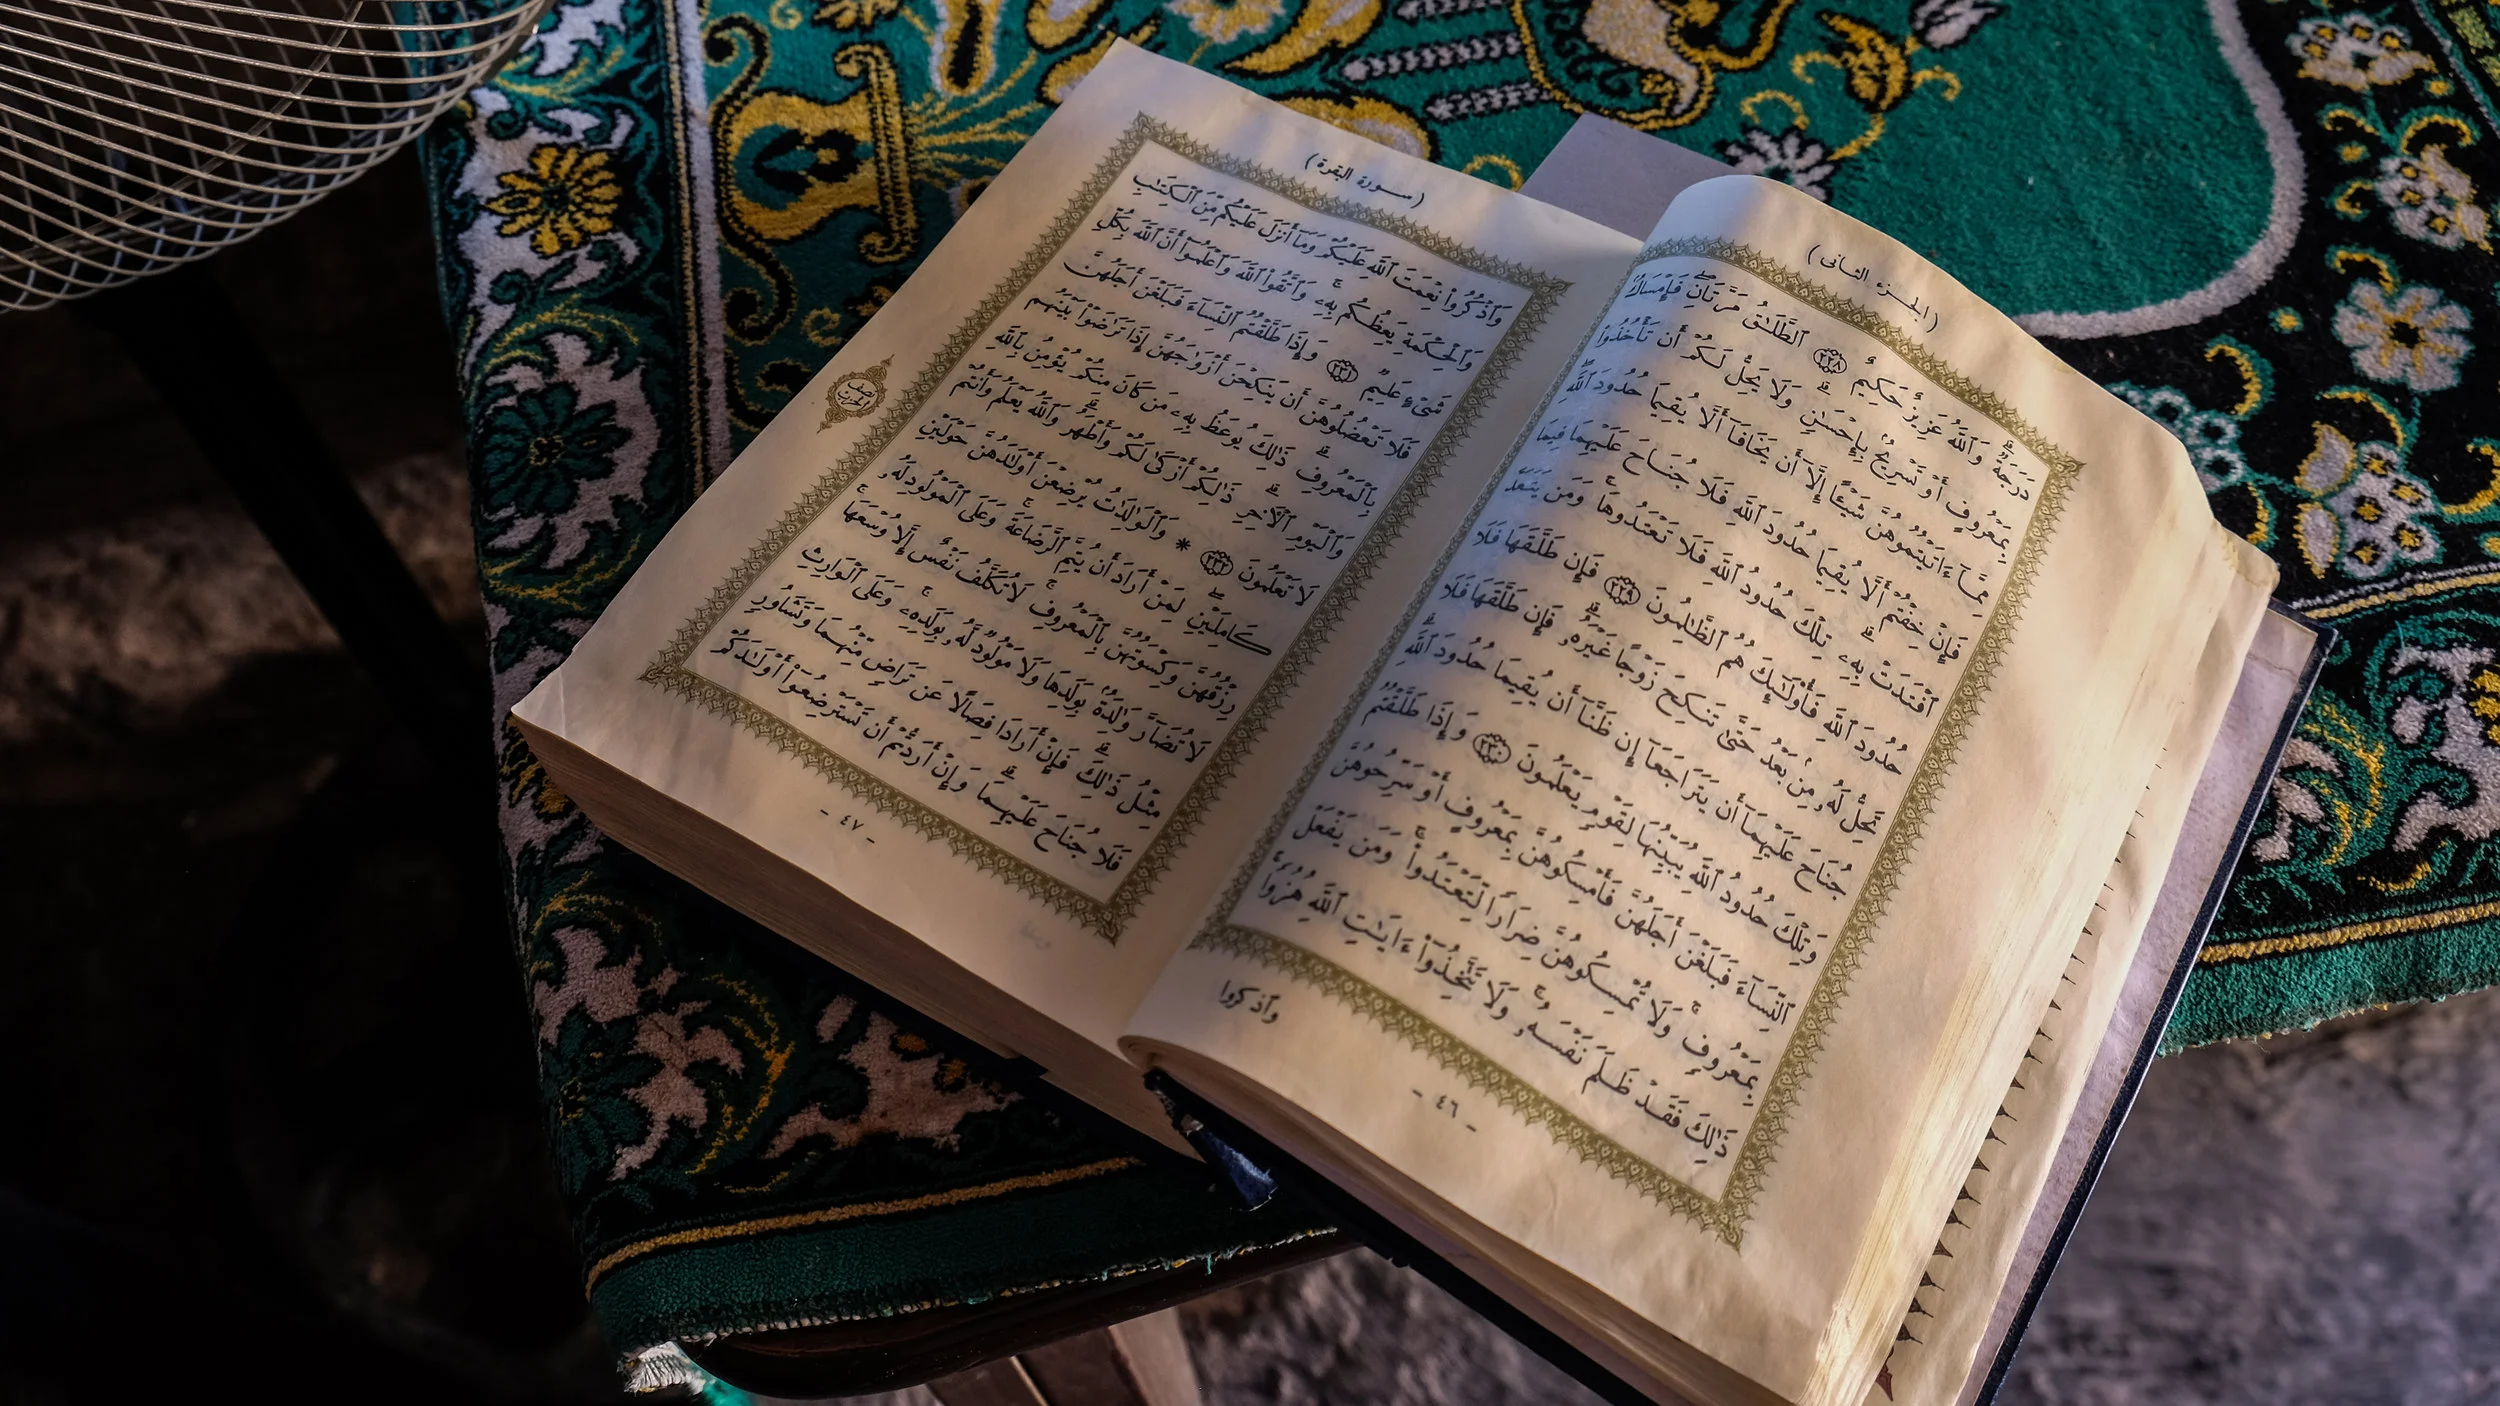 (الجزء الثانى)
دَرَجَةٌ ۗ وَٱللَّهُ عَزِيزٌ حَكِيمٌ ٢٢٨ ٱلطَّلَٰقُ مَرَّتَانِ ۖ فَإِمْسَاكٌۢ
بِمَعْرُوفٍ أَوْ تَسْرِيحٌۢ بِإِحْسَٰنٍ ۗ وَلَا يَحِلُّ لَكُمْ أَن تَأْخُذُوا۟
مِمَّآ ءَاتَيْتُمُوهُنَّ شَيْـًٔا إِلَّآ أَن يَخَافَآ أَلَّا يُقِيمَا حُدُودَ ٱللَّهِ ۖ
فَإِنْ خِفْتُمْ أَلَّا يُقِيمَا حُدُودَ ٱللَّهِ فَلَا جُنَاحَ عَلَيْهِمَا فِيمَا
ٱفْتَدَتْ بِهِۦ ۗ تِلْكَ حُدُودُ ٱللَّهِ فَلَا تَعْتَدُوهَا ۚ وَمَن يَتَعَدَّ
حُدُودَ ٱللَّهِ فَأُو۟لَٰٓئِكَ هُمُ ٱلظَّٰلِمُونَ ٢٢٩ فَإِن طَلَّقَهَا فَلَا
تَحِلُّ لَهُۥ مِنۢ بَعْدُ حَتَّىٰ تَنكِحَ زَوْجًا غَيْرَهُۥ ۗ فَإِن طَلَّقَهَا فَلَا
جُنَاحَ عَلَيْهِمَآ أَن يَتَرَاجَعَآ إِن ظَنَّآ أَن يُقِيمَا حُدُودَ ٱللَّهِ ۗ
وَتِلْكَ حُدُودُ ٱللَّهِ يُبَيِّنُهَا لِقَوْمٍ يَعْلَمُونَ ٢٣٠ وَإِذَا طَلَّقْتُمُ
ٱلنِّسَآءَ فَبَلَغْنَ أَجَلَهُنَّ فَأَمْسِكُوهُنَّ بِمَعْرُوفٍ أَوْ سَرِّحُوهُنَّ
بِمَعْرُوفٍ ۚ وَلَا تُمْسِكُوهُنَّ ضِرَارًا لِّتَعْتَدُوا۟ ۚ وَمَن يَفْعَلْ
ذَٰلِكَ فَقَدْ ظَلَمَ نَفْسَهُۥ ۚ وَلَا تَتَّخِذُوٓا۟ ءَايَٰتِ ٱللَّهِ هُزُوًا ۚ
وٱذكروا
- ٤٦ -
(سورة البقرة)
وَٱذْكُرُوا۟ نِعْمَتَ ٱللَّهِ عَلَيْكُمْ وَمَآ أَنزَلَ عَلَيْكُم مِّنَ ٱلْكِتَٰبِ
وَٱلْحِكْمَةِ يَعِظُكُم بِهِۦ ۚ وَٱتَّقُوا۟ ٱللَّهَ وَٱعْلَمُوٓا۟ أَنَّ ٱللَّهَ بِكُلِّ
شَىْءٍ عَلِيمٌ ٢٣١ وَإِذَا طَلَّقْتُمُ ٱلنِّسَآءَ فَبَلَغْنَ أَجَلَهُنَّ
فَلَا تَعْضُلُوهُنَّ أَن يَنكِحْنَ أَزْوَٰجَهُنَّ إِذَا تَرَٰضَوْا۟ بَيْنَهُم
بِٱلْمَعْرُوفِ ۗ ذَٰلِكَ يُوعَظُ بِهِۦ مَن كَانَ مِنكُمْ يُؤْمِنُ بِٱللَّهِ
وَٱلْيَوْمِ ٱلْءَاخِرِ ۗ ذَٰلِكُمْ أَزْكَىٰ لَكُمْ وَأَطْهَرُ ۗ وَٱللَّهُ يَعْلَمُ وَأَنتُمْ
لَا تَعْلَمُونَ ٢٣٢ * وَٱلْوَٰلِدَٰتُ يُرْضِعْنَ أَوْلَٰدَهُنَّ حَوْلَيْنِ
كَامِلَيْنِ ۖ لِمَنْ أَرَادَ أَن يُتِمَّ ٱلرَّضَاعَةَ ۚ وَعَلَى ٱلْمَوْلُودِ لَهُۥ
رِزْقُهُنَّ وَكِسْوَتُهُنَّ بِٱلْمَعْرُوفِ ۚ لَا تُكَلَّفُ نَفْسٌ إِلَّا وُسْعَهَا ۚ
لَا تُضَآرَّ وَٰلِدَةٌۢ بِوَلَدِهَا وَلَا مَوْلُودٌ لَّهُۥ بِوَلَدِهِۦ ۚ وَعَلَى ٱلْوَارِثِ
مِثْلُ ذَٰلِكَ ۗ فَإِنْ أَرَادَا فِصَالًا عَن تَرَاضٍ مِّنْهُمَا وَتَشَاوُرٍ
فَلَا جُنَاحَ عَلَيْهِمَا ۗ وَإِنْ أَرَدتُّمْ أَن تَسْتَرْضِعُوٓا۟ أَوْلَٰدَكُمْ
نصف
الحزب
- ٤٧ -